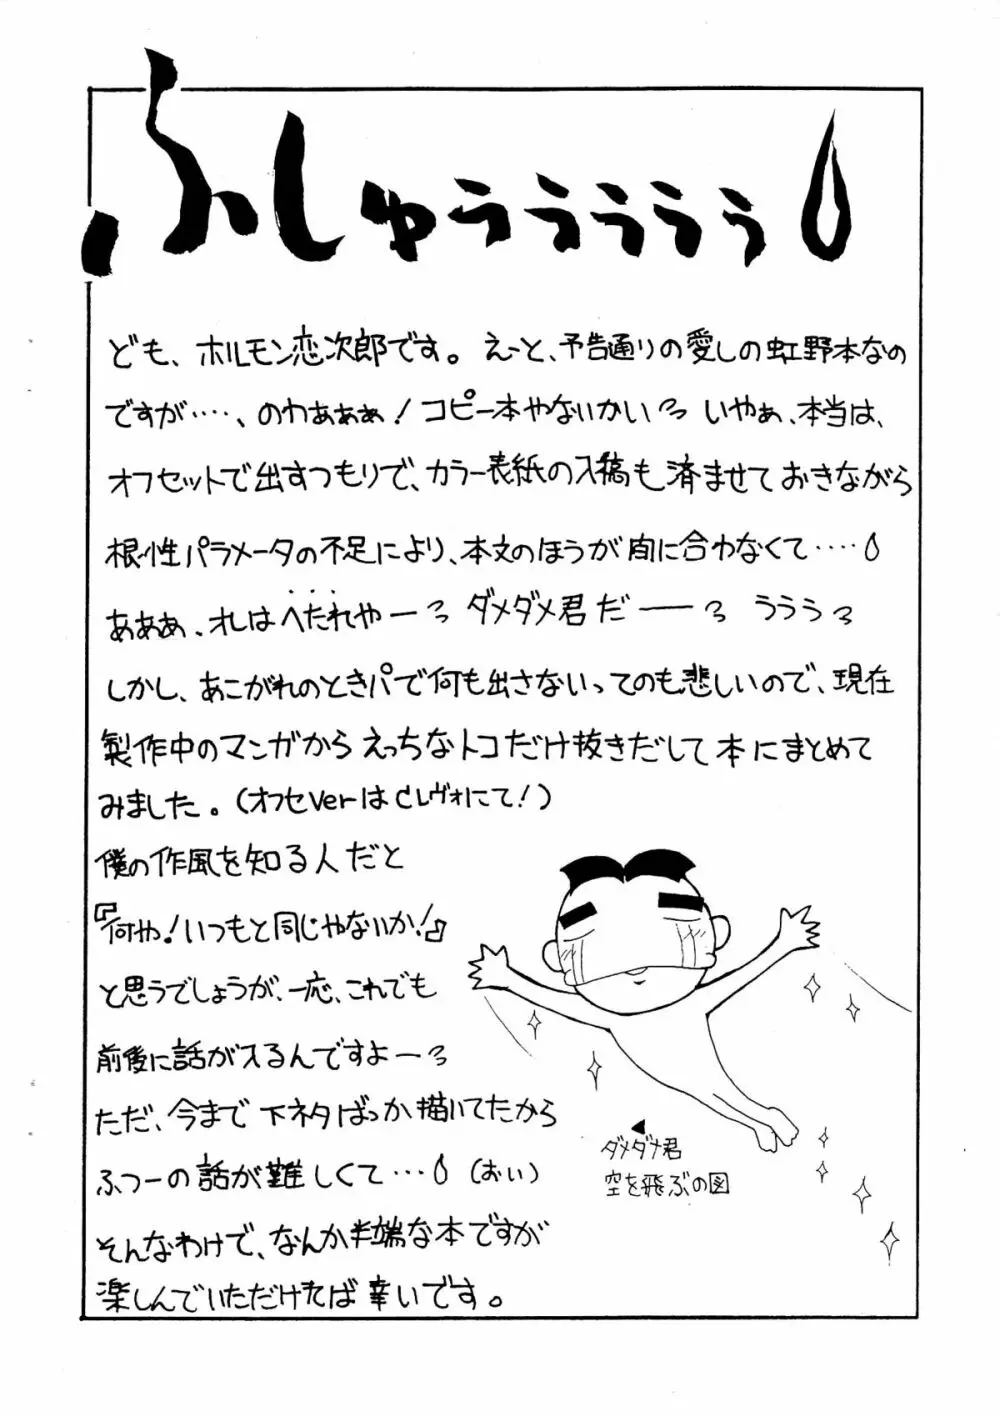 ふしゅぅぅぅぅぅ
ども、ホルモン恋次郎です。えーと、予告通りの愛しの虹野本なの
ですが‥‥、のわぁぁぁ！コピー本やないかいっ いやぁ、本当は、
オフセットで出すつもりで、カラー表紙の入稿も済ませておきながら
根性パラメータの不足により、本文のほうが間に合わなくて‥‥
あぁぁ、オレはへたれやーっ ダメダメ君だ——っ うぅぅっ
しかし、あこがれのときパで何も出さないってのも悲しいので、現在
製作中のマンガからえっちなトコだけ抜きだして本にまとめて
みました。（オフセverはCレヴォにて！）
僕の作風を知る人だと
『何や！いつもと同じやないか！』
と思うでしょうが、一応、これでも
前後に話が入るんですよーっ
ただ、今まで下ネタばっか描いてたから
ふつーの話が難しくて‥‥（おい）
そんなわけで、なんか半端な本ですが
楽しんでいただければ幸いです。
◀
ダメダメ君
空を飛ぶの図